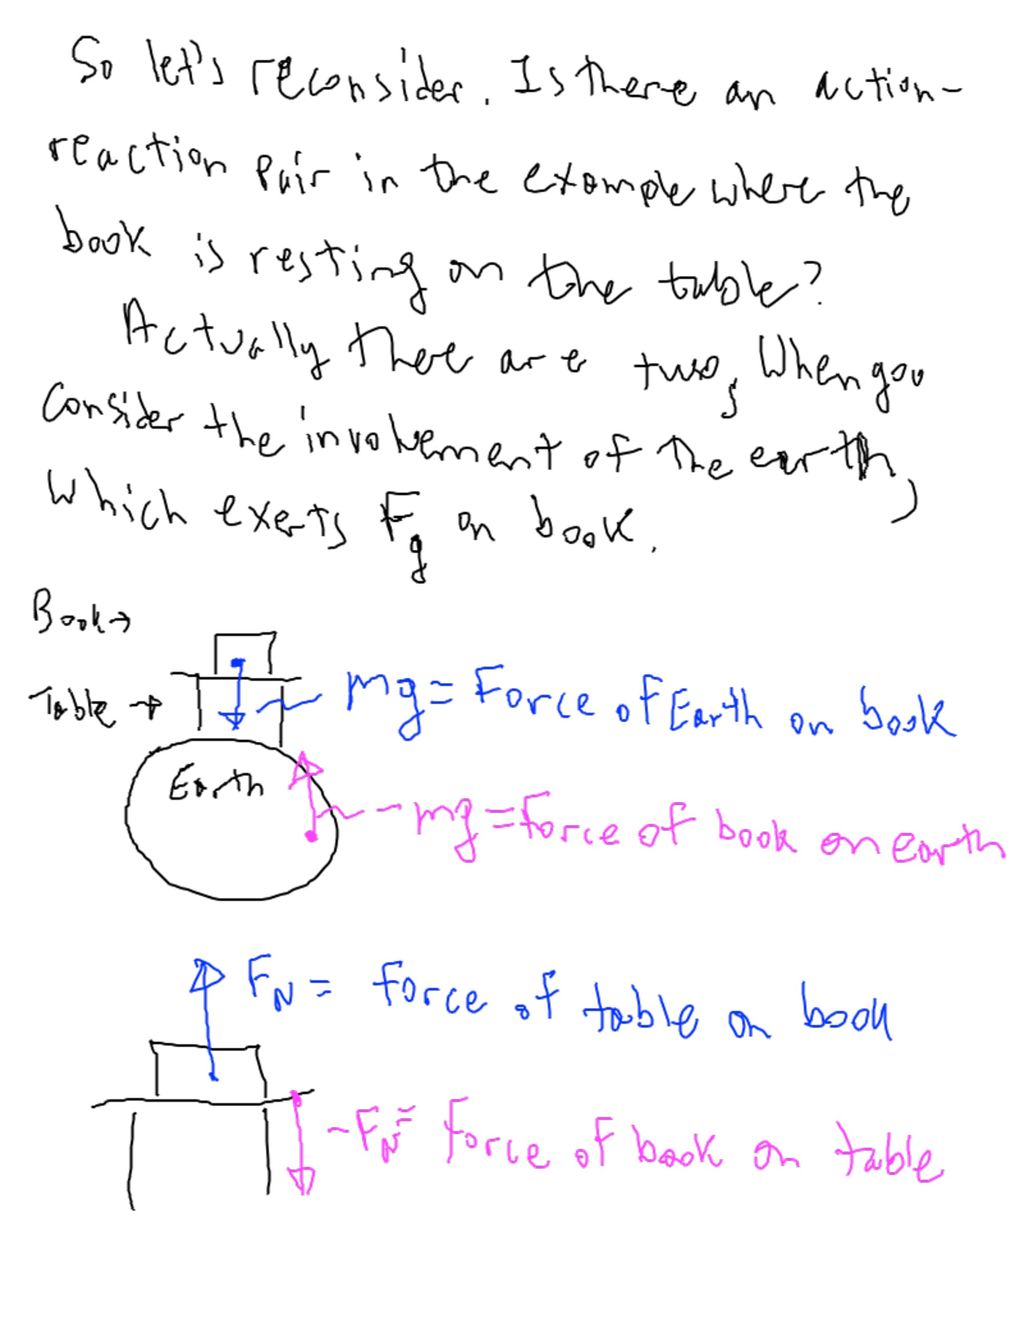 So let's reconsider. Is there an action-
reaction pair in the example where the
book is resting on the table?
Actually there are two, when you
consider the involvement of the earth,
which exerts Fg on book.
Book→
Table →
mg = Force of Earth on book
Earth
-mg = Force of book on earth
FN = force of table on book
-FN = force of book on table